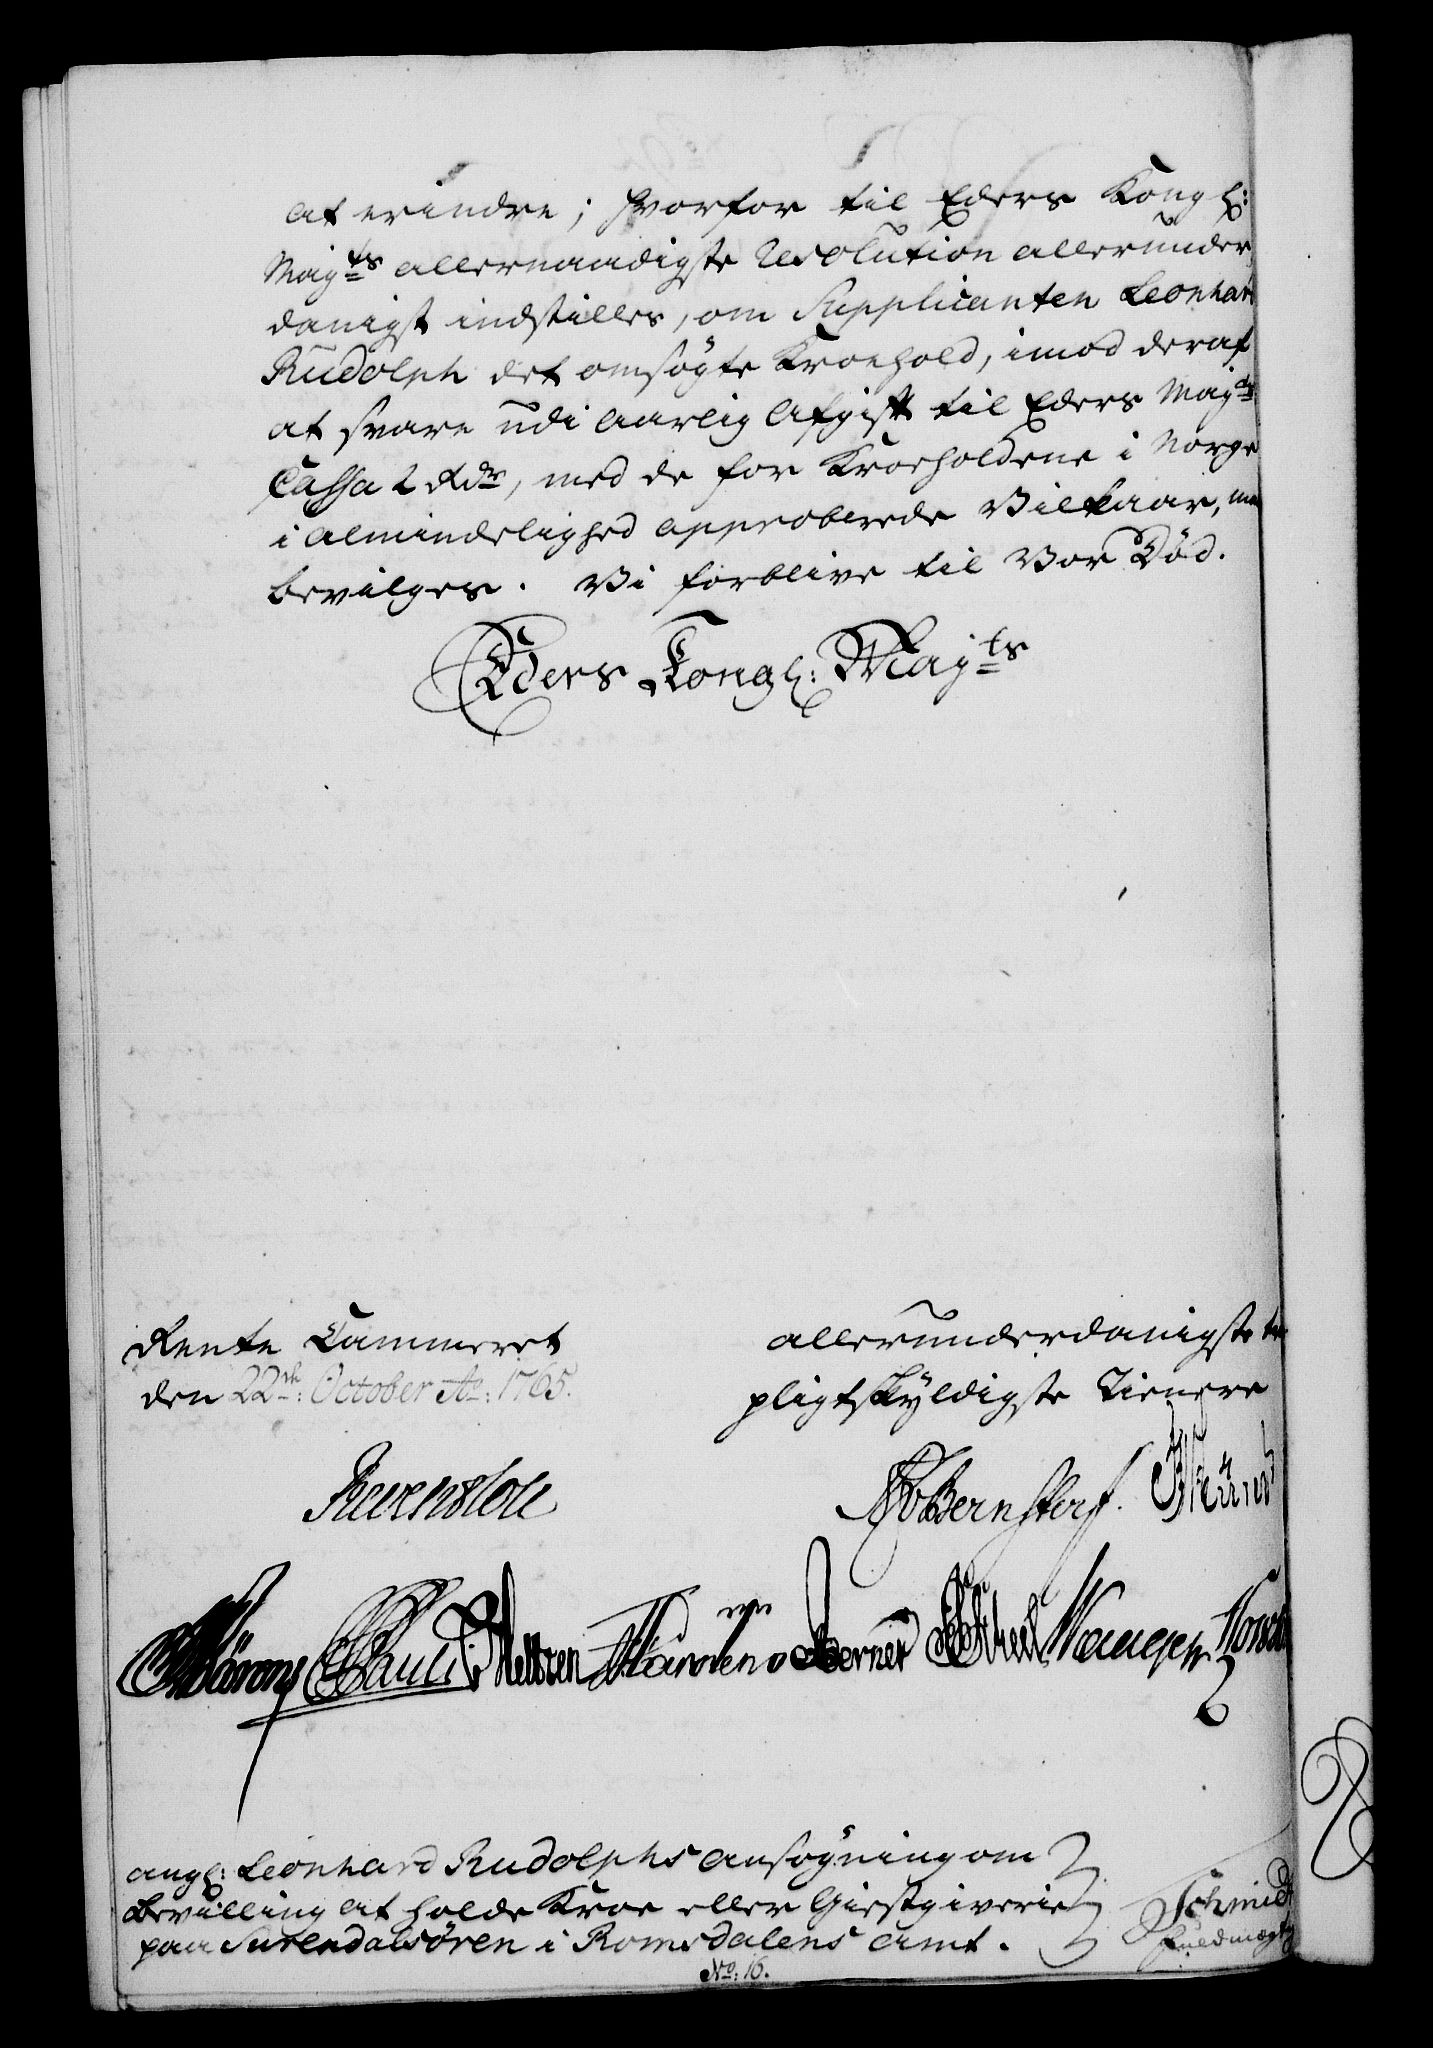 at erindre; hvorfor til Eders Kongl:
Mayts allernaadigste Resolution allerunder
danigst indstilles, om Supplicanten Leonhard
Rudolph det omsøgte Kroehold, imod deraf
at svare udi aarlig Afgift til Eders Mayts
Cassa 2 Rdr, med de for Kroeholdene i Norge
i almindelighed approberede Vilkaar, maa
bevilges. Vi forblive til Vor Død.
Eders Kongl: Mayts
Rente Cammeret
den 22de: October Ao: 1765.
allerunderdanigste
pligtskyldigste Tienere
Reventlou
Bernstorf.
angl: Leonhard Rudolphs ansøgning om
Bevilling at holde Kroe eller Giestgiverie
paa Surendalsøren i Romsdalens Amt.
Schmidt
fuldmægtig
No: 16.